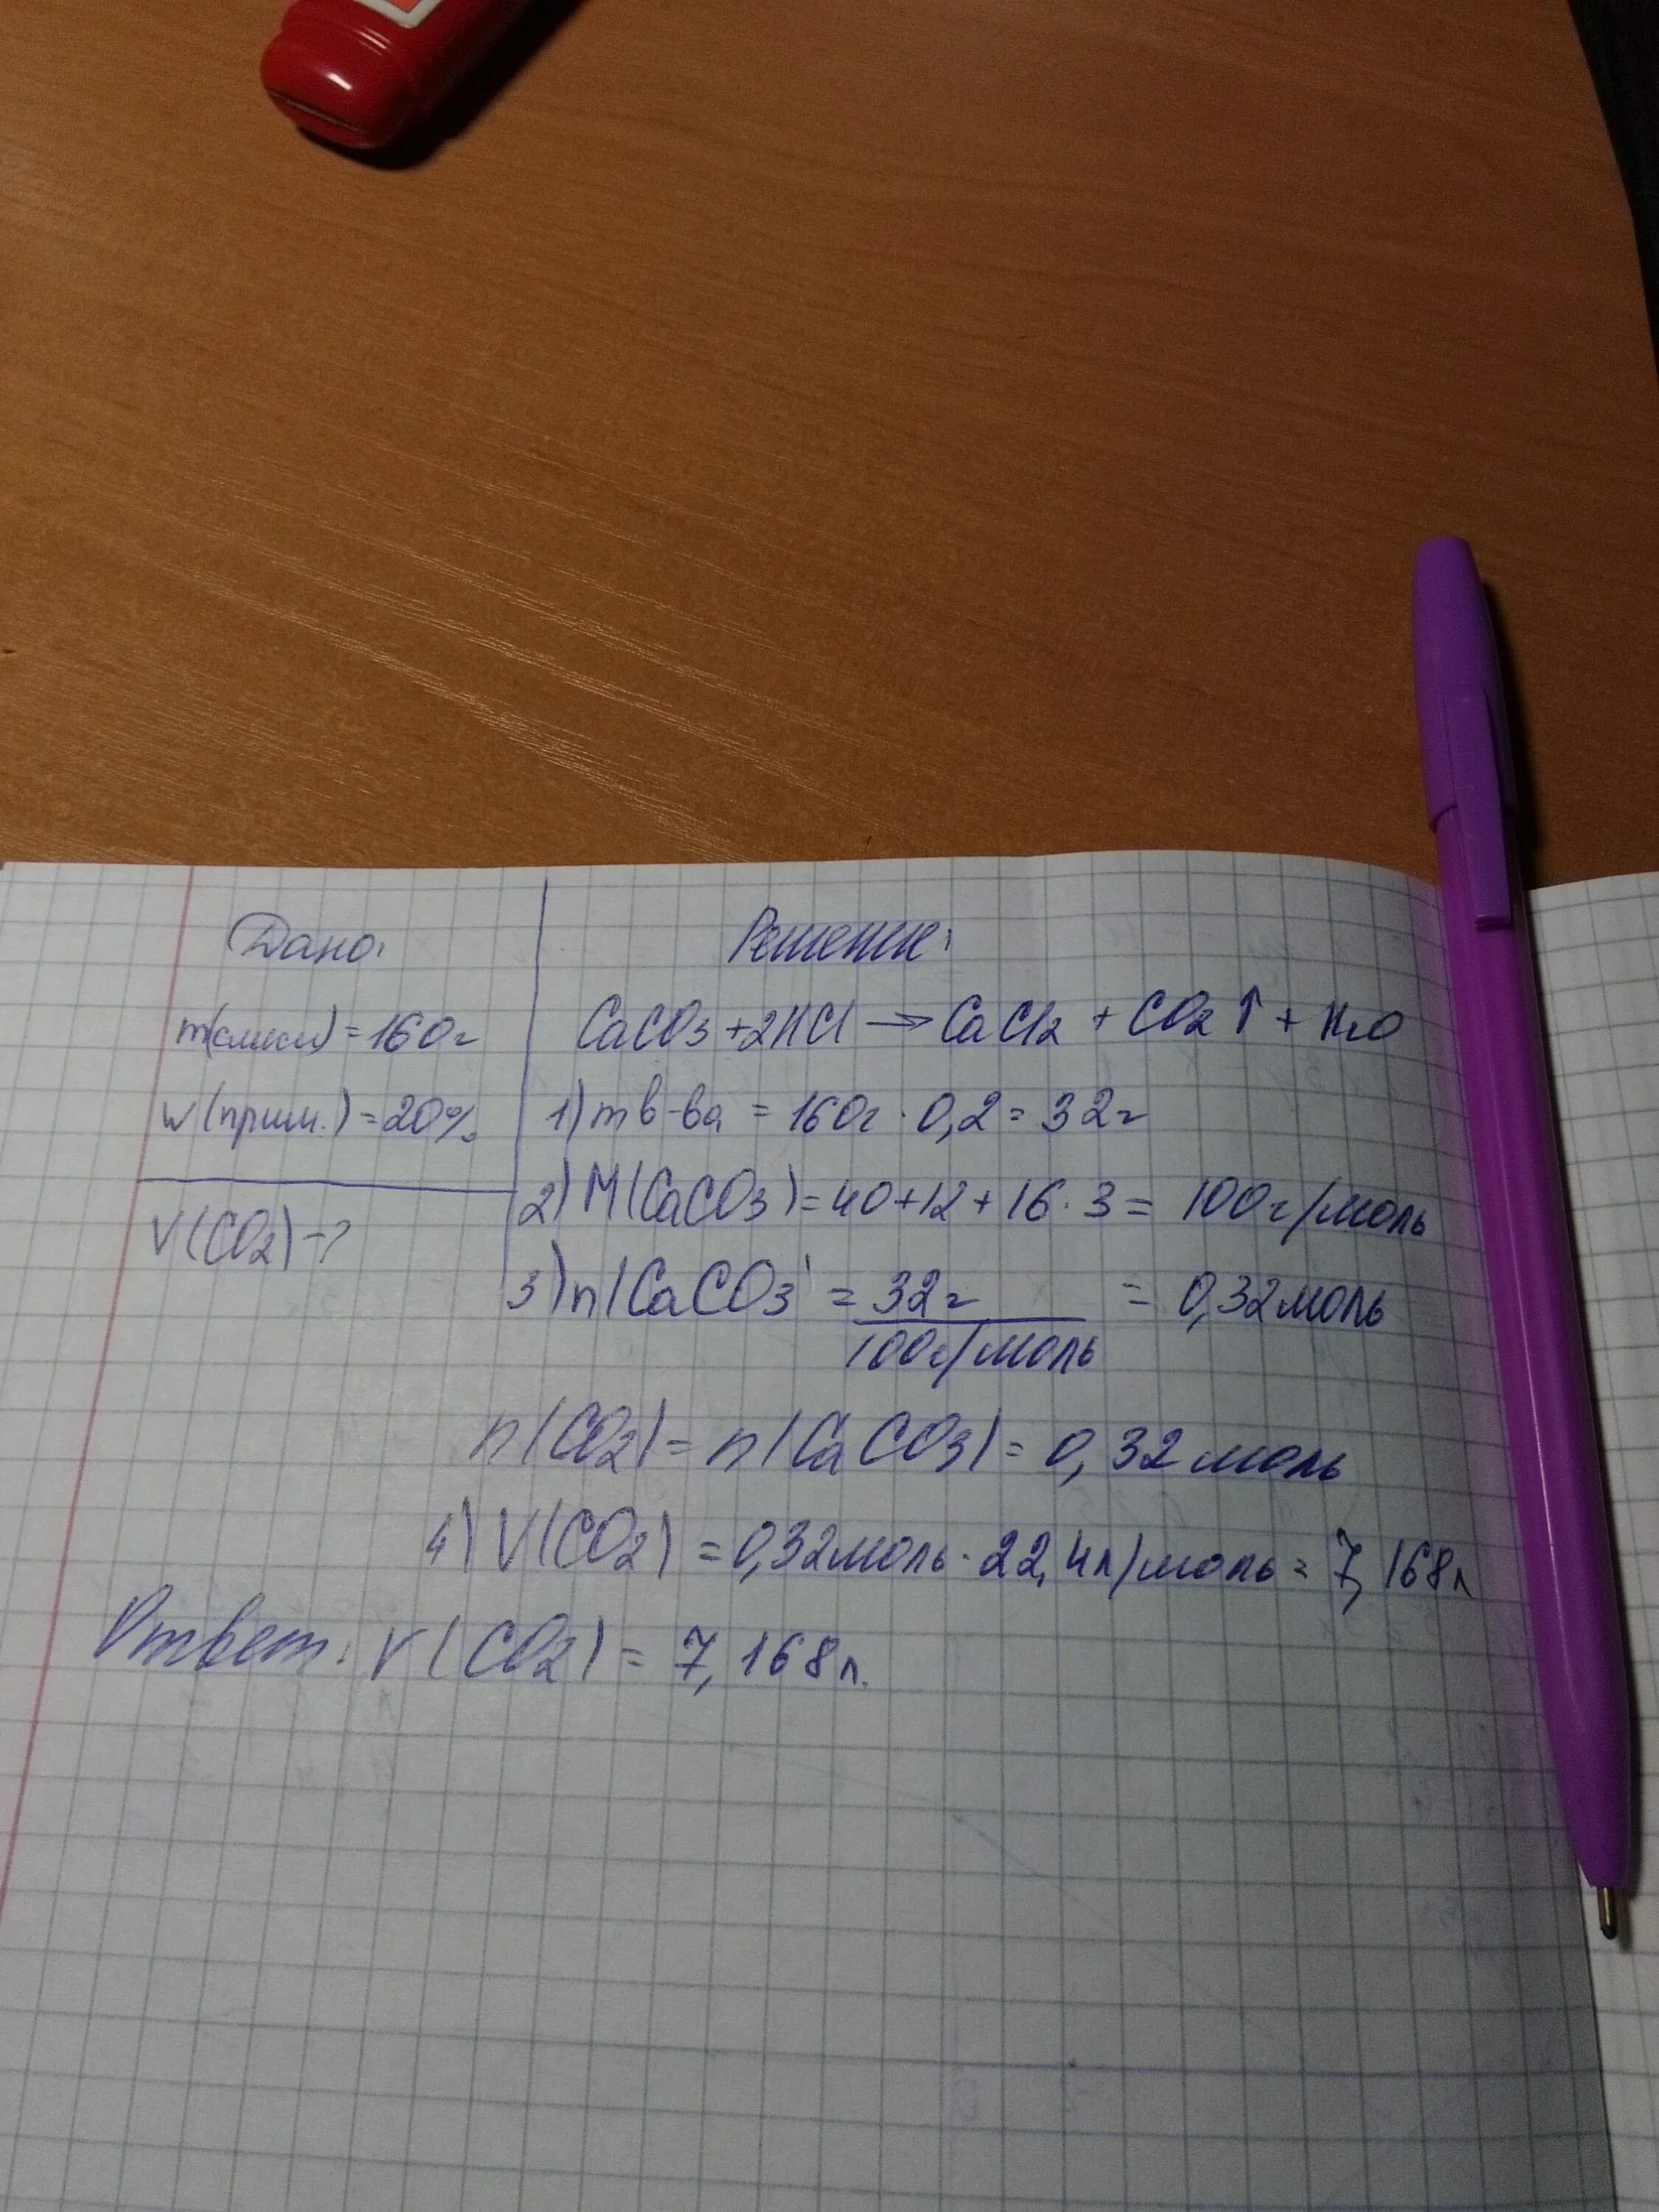 Дано:
m(смеси) = 160г
w(прим.) = 20%
V(CO2) - ?
Решение:
CaCO3 + 2HCl → CaCl2 + CO2↑ + H2O
1) m в-ва = 160г · 0,2 = 32г
2) M(CaCO3) = 40 + 12 + 16 · 3 = 100г/моль
3) n(CaCO3) = 32г / 100г/моль = 0,32моль
n(CO2) = n(CaCO3) = 0,32 моль
4) V(CO2) = 0,32моль · 22,4л/моль = 7,168л
Ответ: V(CO2) = 7,168л.